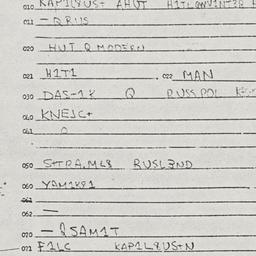 010 KAP1L8US+ AHUT
011 — Q RUS
020 HUT Q MODERN
021 H1T1 . 022 MAN
030 DAS-1K Q RUSS POL
040 KNEJC+
041 Q
050 S+RA,ML8 RUSL3ND
060 YAM1K81
061
062 —
070 — Q SAM1T
071 F1LC KAP1L8US+N